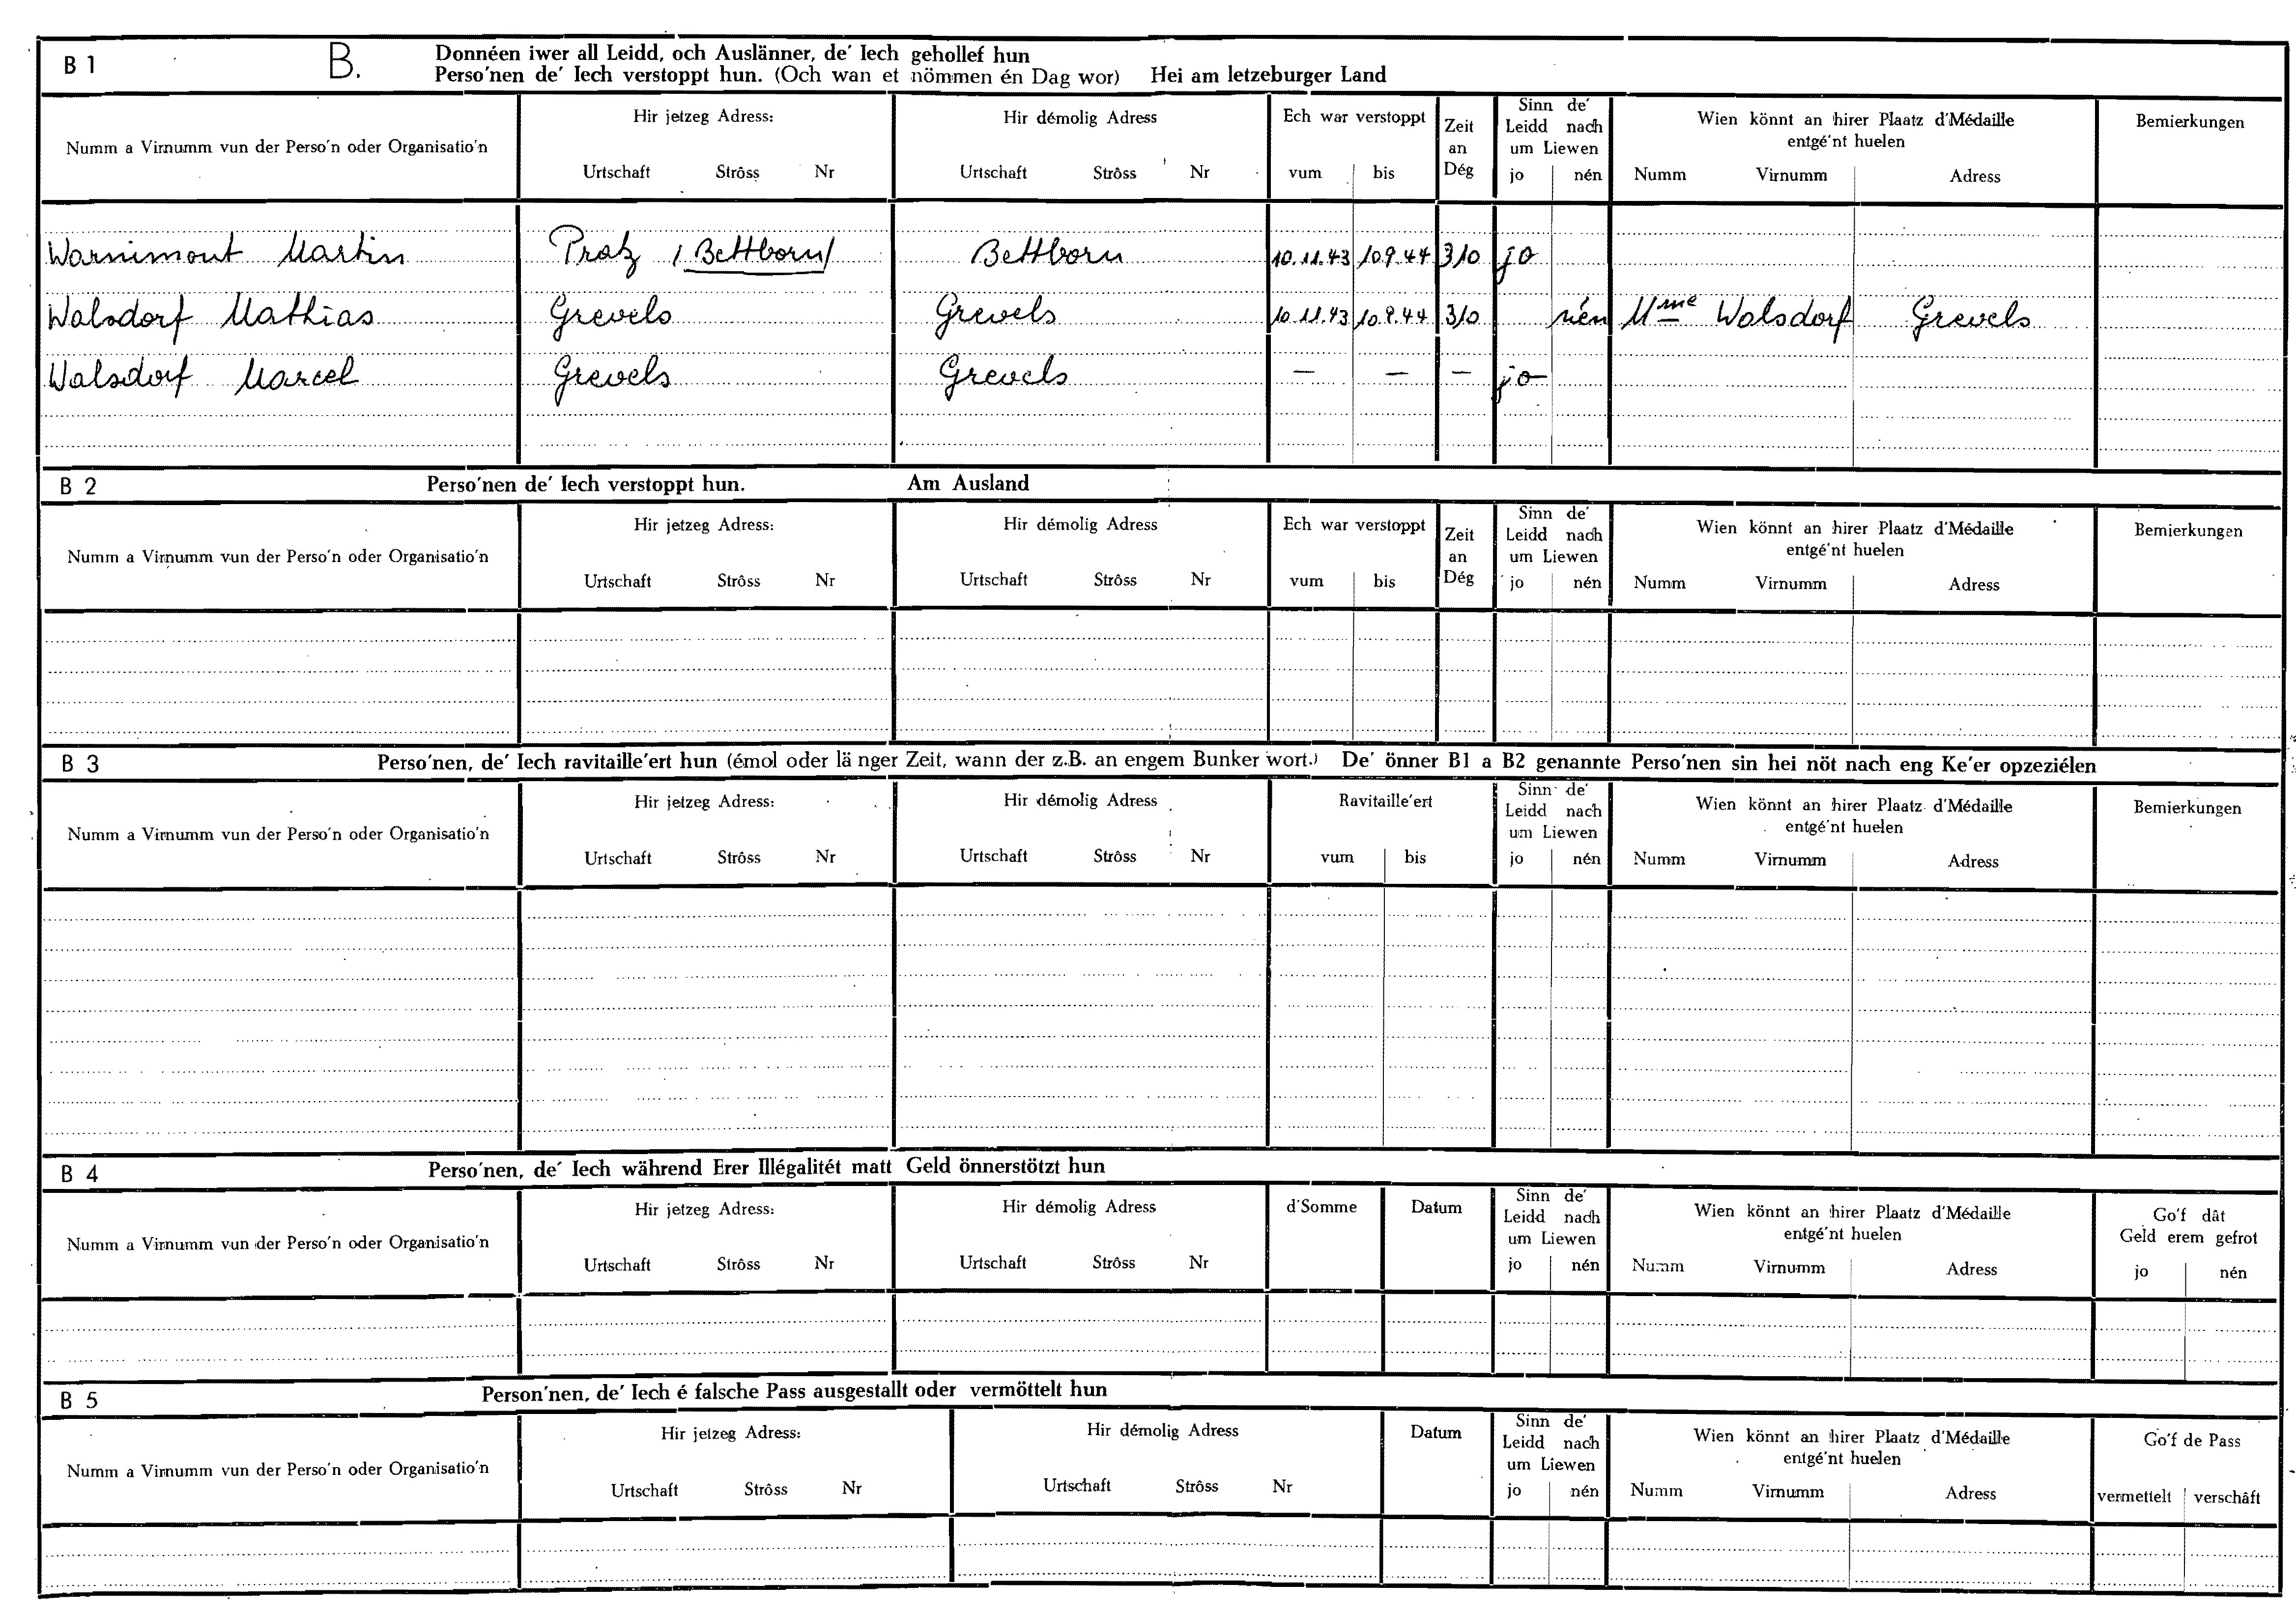 B 1 B. Donnéen iwer all Leidd, och Auslänner, de' Iech gehollef hun
Perso'nen de' Iech verstoppt hun. (Och wan et nömmen én Dag wor) Hei am letzeburger Land
Numm a Virnumm vun der Perso'n oder Organisatio'n
Hir jetzeg Adress:
Urtschaft Strôss Nr
Hir démolig Adress
Urtschaft Strôss Nr
Ech war verstoppt
vum bis
Zeit
an
Dég
Sinn de'
Leidd nach
um Liewen
jo nén
Wien könnt an hirer Plaatz d'Médaille
entgé'nt huelen
Numm Virnumm Adress
Bemierkungen
Warnimont Martin Pratz (Bettborn) Bettborn 10.11.43 10.9.44 310 jo
Walsdorf Mathias Grevels Grevels 10.11.43 10.9.44 310 nén Mme Walsdorf Grevels
Walsdorf Marcel Grevels Grevels — — — jo
B 2 Perso'nen de' Iech verstoppt hun. Am Ausland
Numm a Virnumm vun der Perso'n oder Organisatio'n
Hir jetzeg Adress:
Urtschaft Strôss Nr
Hir démolig Adress
Urtschaft Strôss Nr
Ech war verstoppt
vum bis
Zeit
an
Dég
Sinn de'
Leidd nach
um Liewen
jo nén
Wien könnt an hirer Plaatz d'Médaille
entgé'nt huelen
Numm Virnumm Adress
Bemierkungen
B 3 Perso'nen, de' Iech ravitaille'ert hun (émol oder länger Zeit, wann der z.B. an engem Bunker wort.) De' önner B1 a B2 genannte Perso'nen sin hei nöt nach eng Ke'er opzeziélen
Numm a Virnumm vun der Perso'n oder Organisatio'n
Hir jetzeg Adress:
Urtschaft Strôss Nr
Hir démolig Adress
Urtschaft Strôss Nr
Ravitaille'ert
vum bis
Sinn de'
Leidd nach
um Liewen
jo nén
Wien könnt an hirer Plaatz d'Médaille
entgé'nt huelen
Numm Virnumm Adress
Bemierkungen
B 4 Perso'nen, de' Iech während Erer Illégalitét matt Geld önnerstötzt hun
Numm a Virnumm vun der Perso'n oder Organisatio'n
Hir jetzeg Adress:
Urtschaft Strôss Nr
Hir démolig Adress
Urtschaft Strôss Nr
d'Somme
Datum
Sinn de'
Leidd nach
um Liewen
jo nén
Wien könnt an hirer Plaatz d'Médaille
entgé'nt huelen
Numm Virnumm Adress
Go'f dât
Geld erem gefrot
jo nén
B 5 Person'nen, de' Iech é falsche Pass ausgestallt oder vermöttelt hun
Numm a Virnumm vun der Perso'n oder Organisatio'n
Hir jetzeg Adress:
Urtschaft Strôss Nr
Hir démolig Adress
Urtschaft Strôss Nr
Datum
Sinn de'
Leidd nach
um Liewen
jo nén
Wien könnt an hirer Plaatz d'Médaille
entgé'nt huelen
Numm Virnumm Adress
Go'f de Pass
vermettelt verschâft